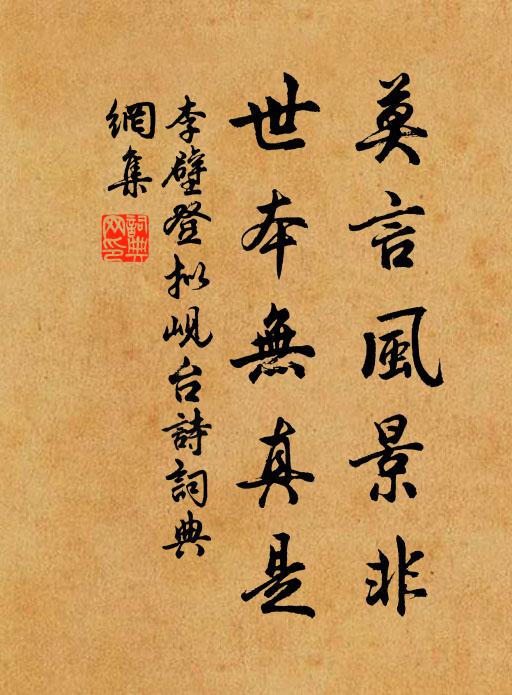 莫言風景非
世本無真是
李壁登拟峴台詩詞典
網集
詞典
網印